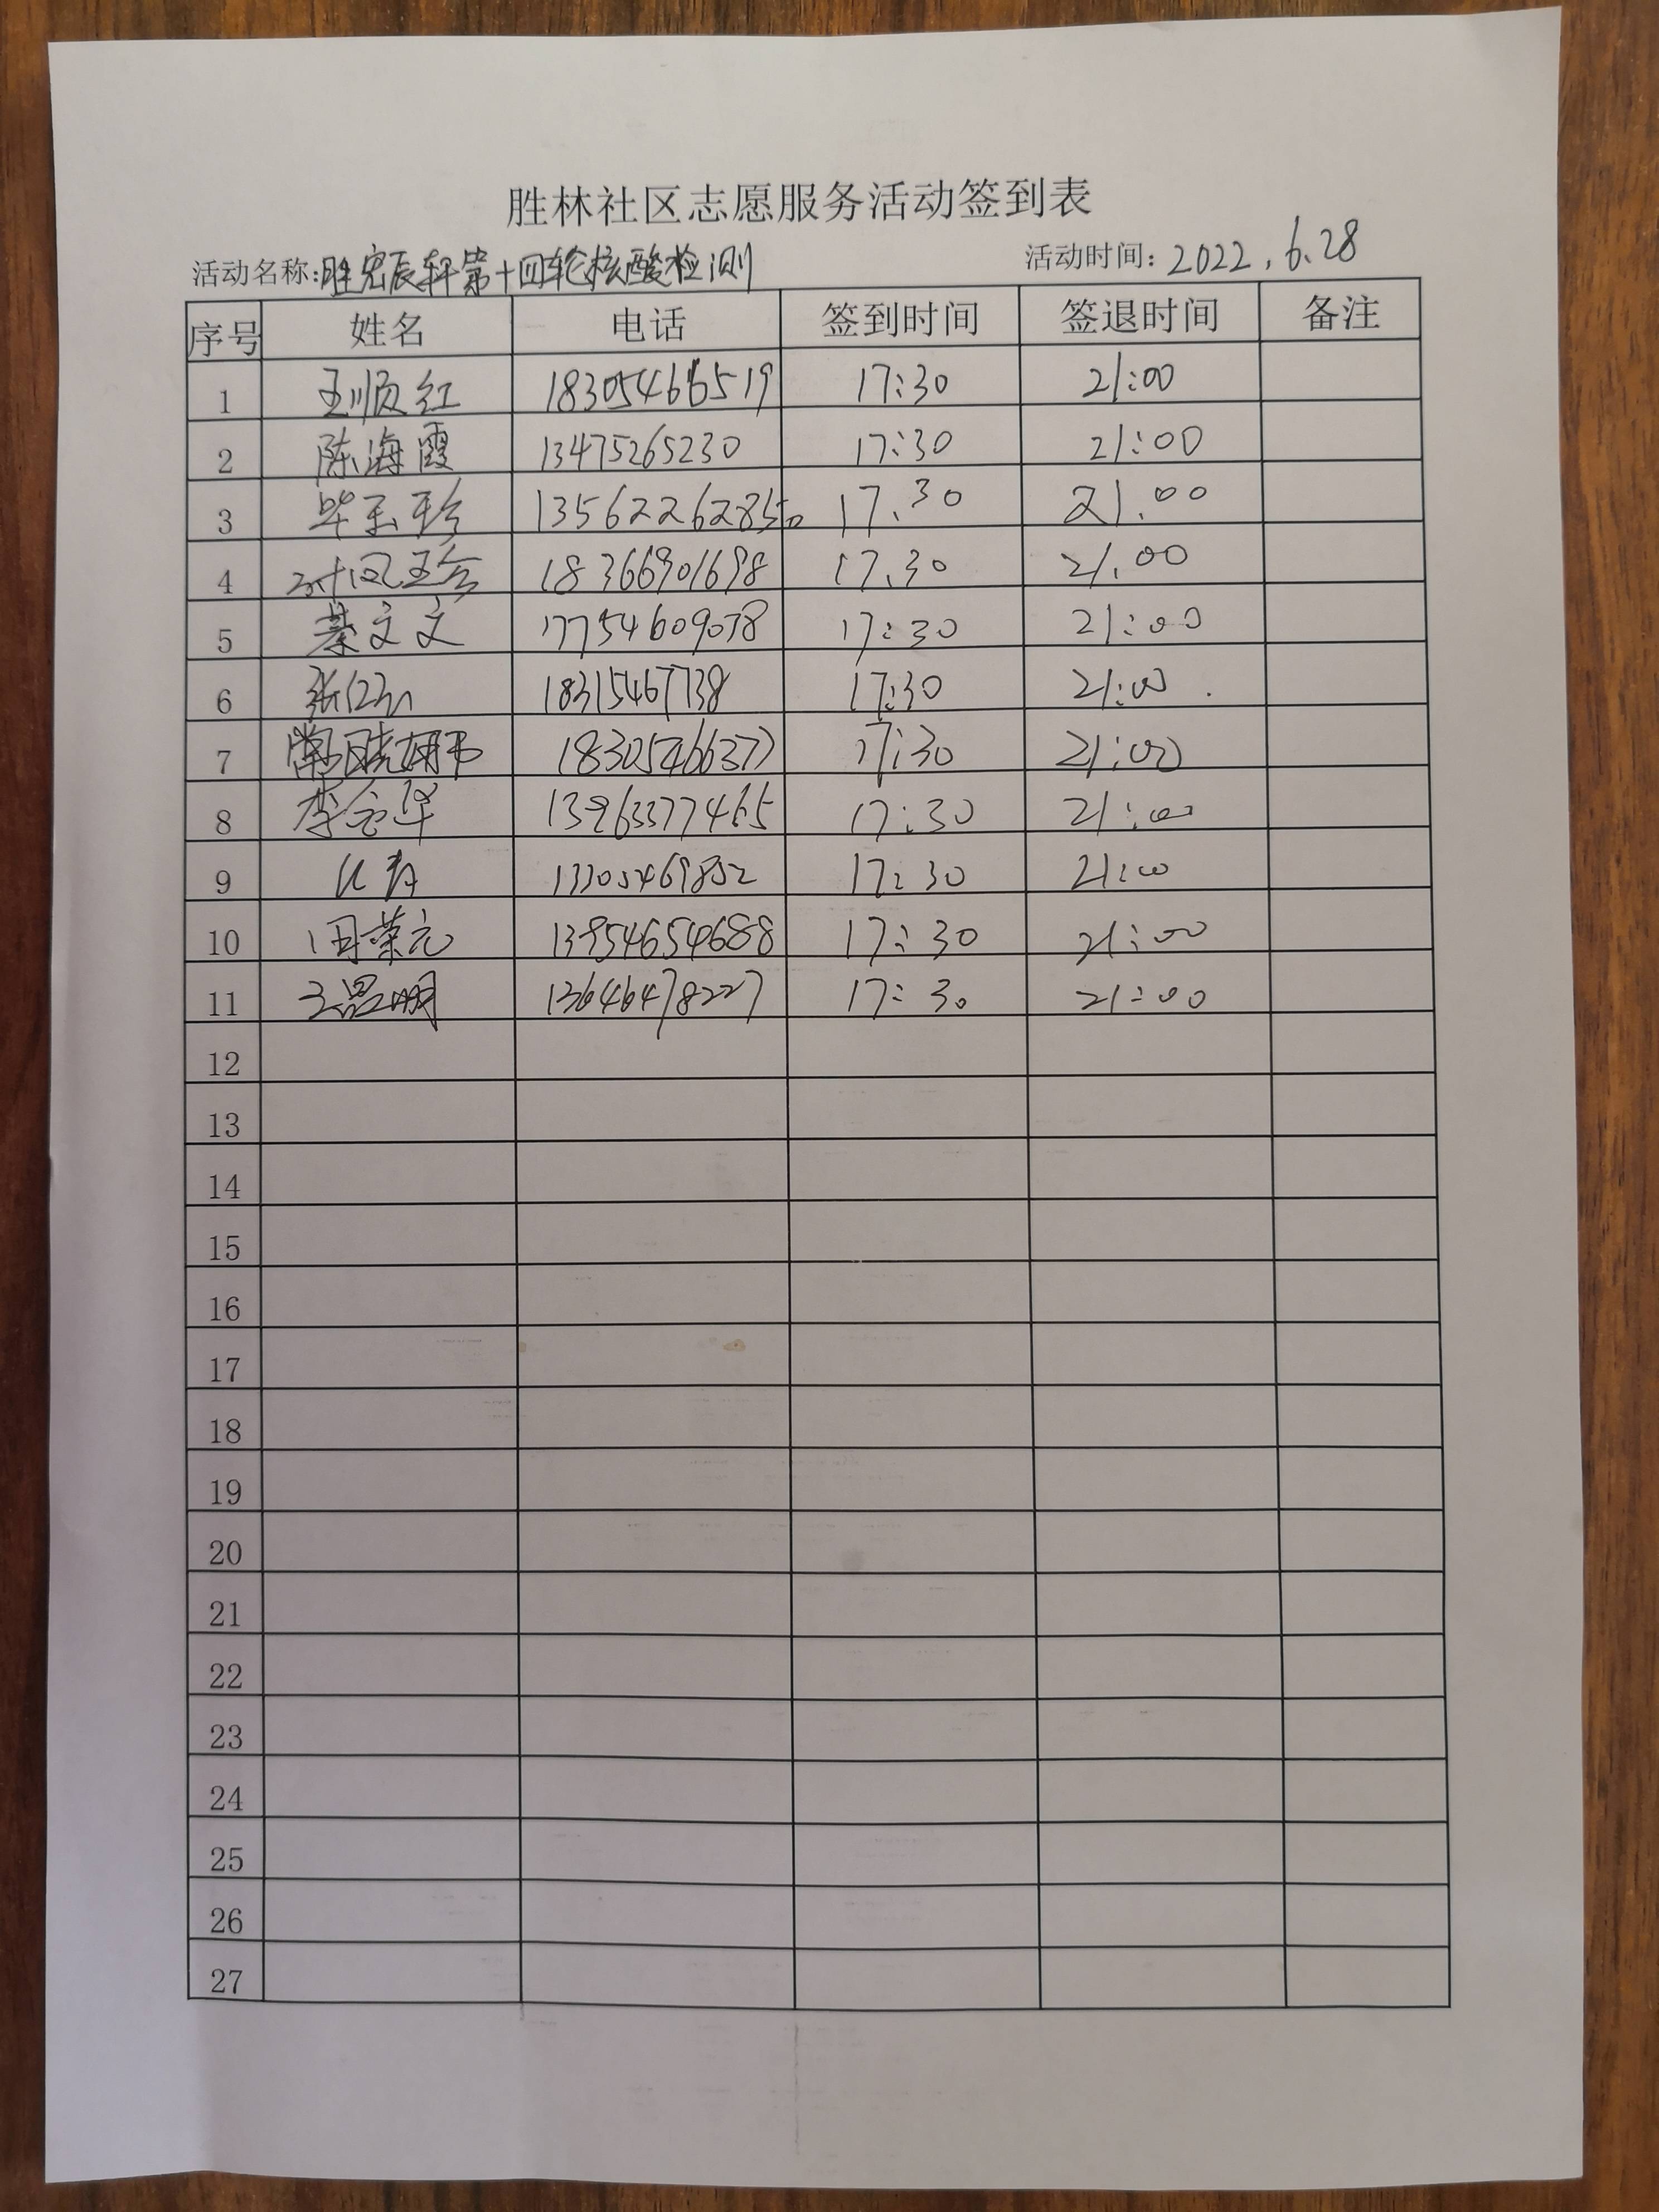 胜林社区志愿服务活动签到表
活动名称:胜宏辰轩第十四轮核酸检测 活动时间: 2022.6.28
序号 姓名 电话 签到时间 签退时间 备注
1 王顺红 18305466519 17:30 21:00
2 陈海霞 13475265230 17:30 21:00
3 毕玉珍 17.30 21.00
4 18366901698 17.30 21.00
5 綦文文 17754609078 17:30 21:00
6 18315467738 17:30 21:00
7 18305466377 17:30 21:00
8 李会华 13963377465 17:30 21:00
9 13305469852 17:30 21:00
10 13954654688 17:30 21:00
11 13646478227 17:30 21:00
12
13
14
15
16
17
18
19
20
21
22
23
24
25
26
27